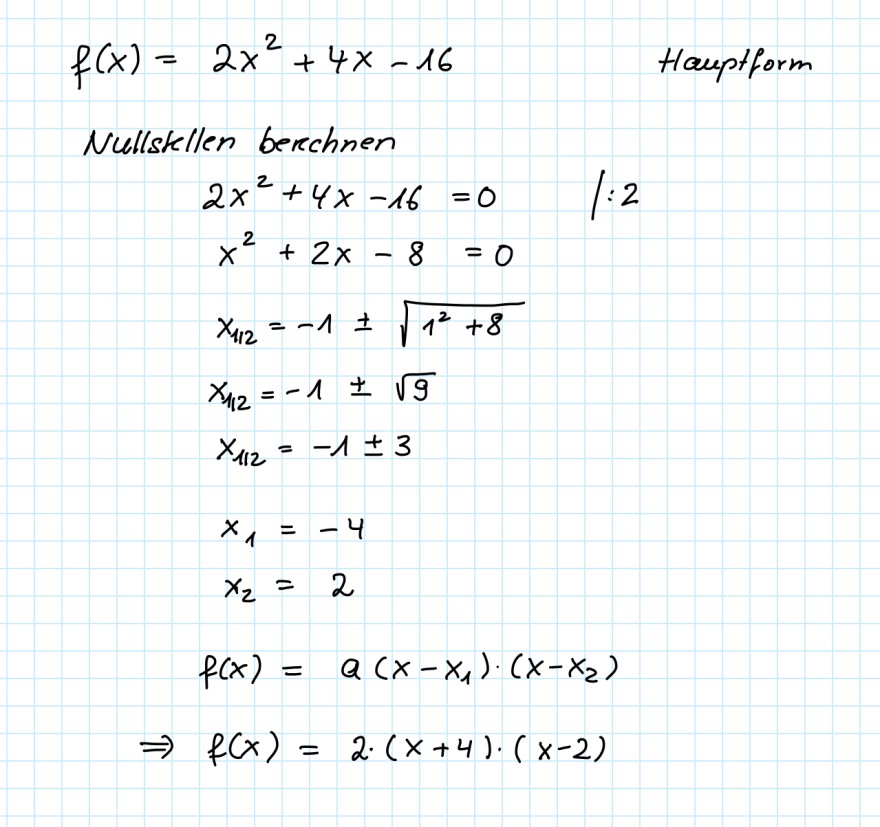 f(x) = 2x² + 4x - 16 Hauptform
Nullstellen berechnen
2x² + 4x - 16 = 0 |:2
x² + 2x - 8 = 0
x₁/₂ = -1 ± √(1² + 8)
x₁/₂ = -1 ± √9
x₁/₂ = -1 ± 3
x₁ = -4
x₂ = 2
f(x) = a (x - x₁) · (x - x₂)
⇒ f(x) = 2 · (x + 4) · (x - 2)